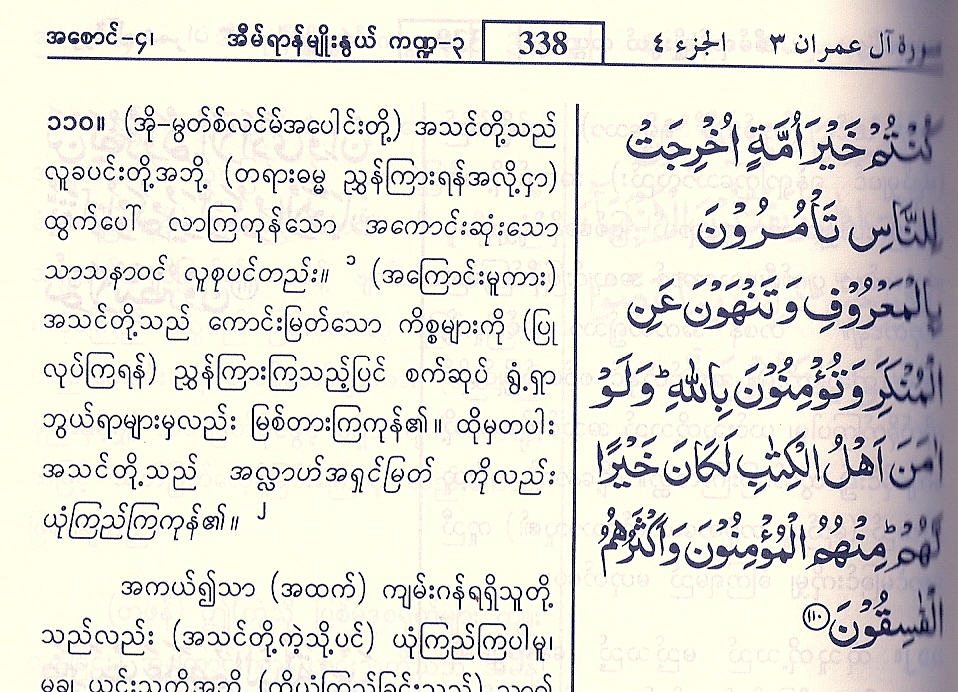 အစောင်-၄၊ အီမ်ရာန်မျိုးနွယ် ကဏ္ဍ-၃ 338 الجزء ٤ سورة آل عمران ٣
၁၁၀။ (အို-မွတ်စ်လင်မ်အပေါင်းတို့) အသင်တို့သည်
လူခပင်းတို့အဘို့ (တရားဓမ္မ ညွှန်ကြားရန်အလို့ငှာ)
ထွက်ပေါ် လာကြကုန်သော အကောင်းဆုံးသော
သာသနာဝင် လူစုပင်တည်း။ ၁ (အကြောင်းမူကား)
အသင်တို့သည် ကောင်းမြတ်သော ကိစ္စများကို (ပြု
လုပ်ကြရန်) ညွှန်ကြားကြသည့်ပြင် စက်ဆုပ် ရွံ့ရှာ
ဘွယ်ရာများမှလည်း မြစ်တားကြကုန်၏။ ထိုမှတပါး
အသင်တို့သည် အလ္လာဟ်အရှင်မြတ် ကိုလည်း
ယုံကြည်ကြကုန်၏။ ၂
အကယ်၍သာ (အထက်) ကျမ်းဂန်ရရှိသူတို့
သည်လည်း (အသင်တို့ကဲ့သို့ပင်) ယုံကြည်ကြပါမူ၊
كُنْتُمْ خَيْرَ اُمَّةٍ اُخْرِجَتْ
لِلنَّاسِ تَاْمُرُوْنَ
بِالْمَعْرُوْفِ وَتَنْهَوْنَ عَنِ
الْمُنْكَرِ وَتُؤْمِنُوْنَ بِاللهِ ؕ وَلَوْ
اٰمَنَ اَهْلُ الْكِتٰبِ لَكَانَ خَيْرًا
لَّهُمْ ؕ مِنْهُمُ الْمُؤْمِنُوْنَ وَاَكْثَرُهُمُ
الْفٰسِقُوْنَ ١١٠